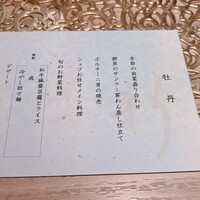 牡丹
季節の前菜盛り合わせ
鮮魚のサンラー茶わん蒸し仕立て
ポルチーニ茸の焼売
シェフお任せメイン料理
旬のお野菜料理
和牛麻婆豆腐とライス
或
冷やし担々麺
デザート